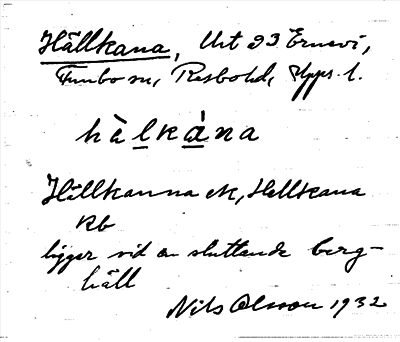 Hällkana, Urt 23 Ernevi,
Funbo sn, Rasbo hd, Upps. l.
hàlkána
Hällkanna ek, Hellkana
kb
ligger vid en sluttande berg-
häll
Nils Olsson 1932